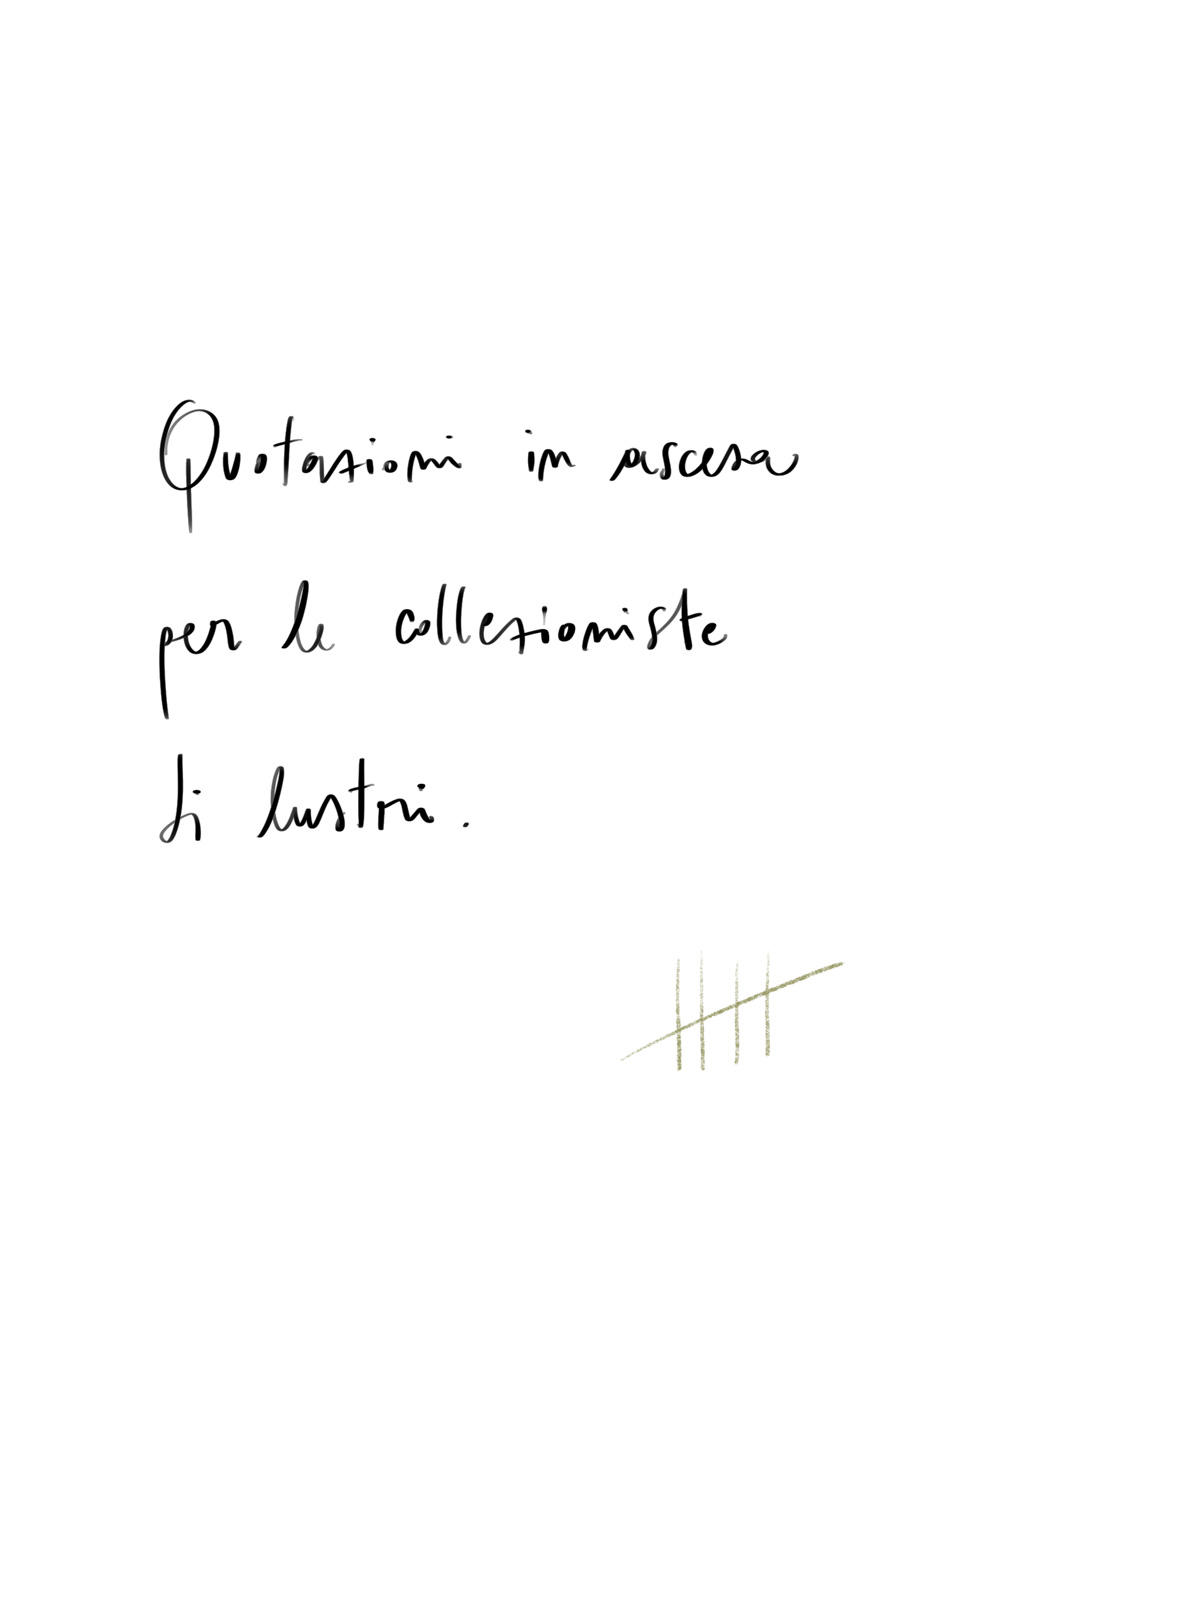 Quotazioni in ascesa
per le collezioniste
di lustri.